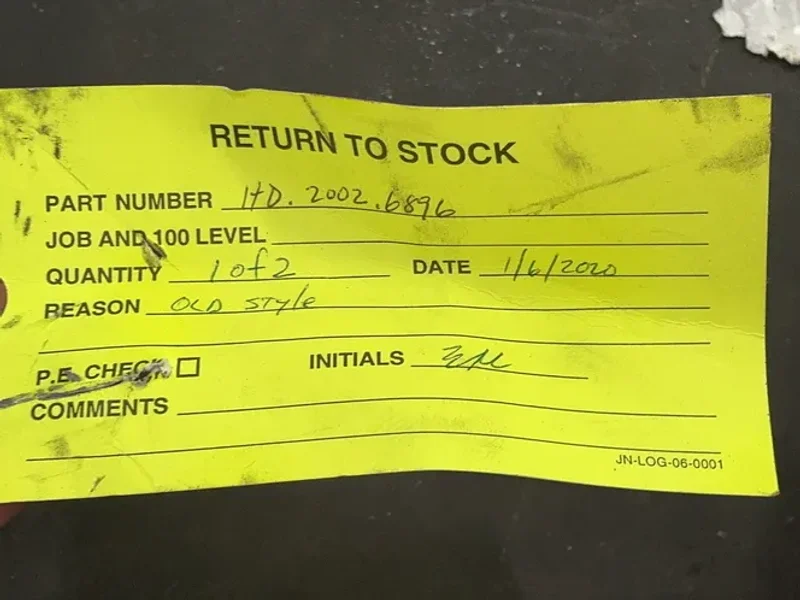 RETURN TO STOCK
PART NUMBER HD.2002.6896
JOB AND 100 LEVEL
QUANTITY 1 of 2 DATE 1/6/2020
REASON OLD STYle
P.E. CHECK INITIALS
COMMENTS
JN-LOG-06-0001